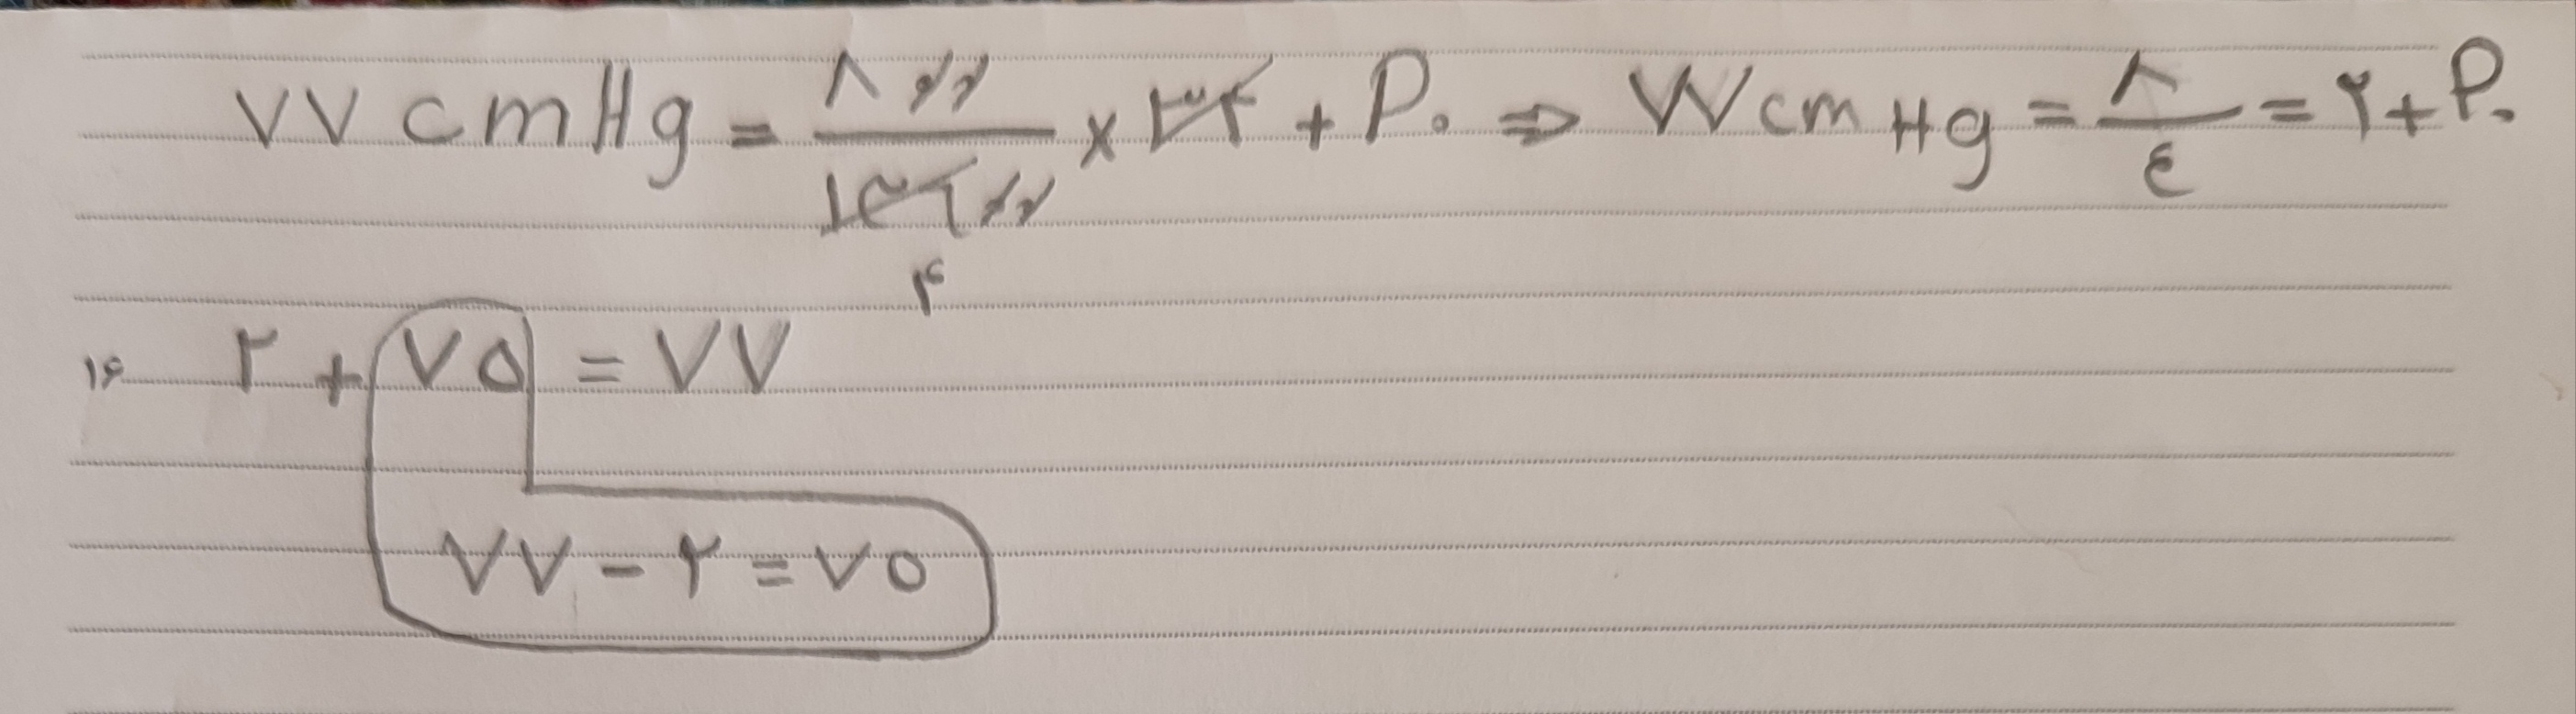 ۷۷ cmHg = ۸۰۰ / ۱۳۶۰۰ × ۳۴ + P۰ ⇒ ۷۷ cmHg = ۸ / ۴ = ۲ + P۰
۴
۲ + ۷۵ = ۷۷
۷۷ - ۲ = ۷۵